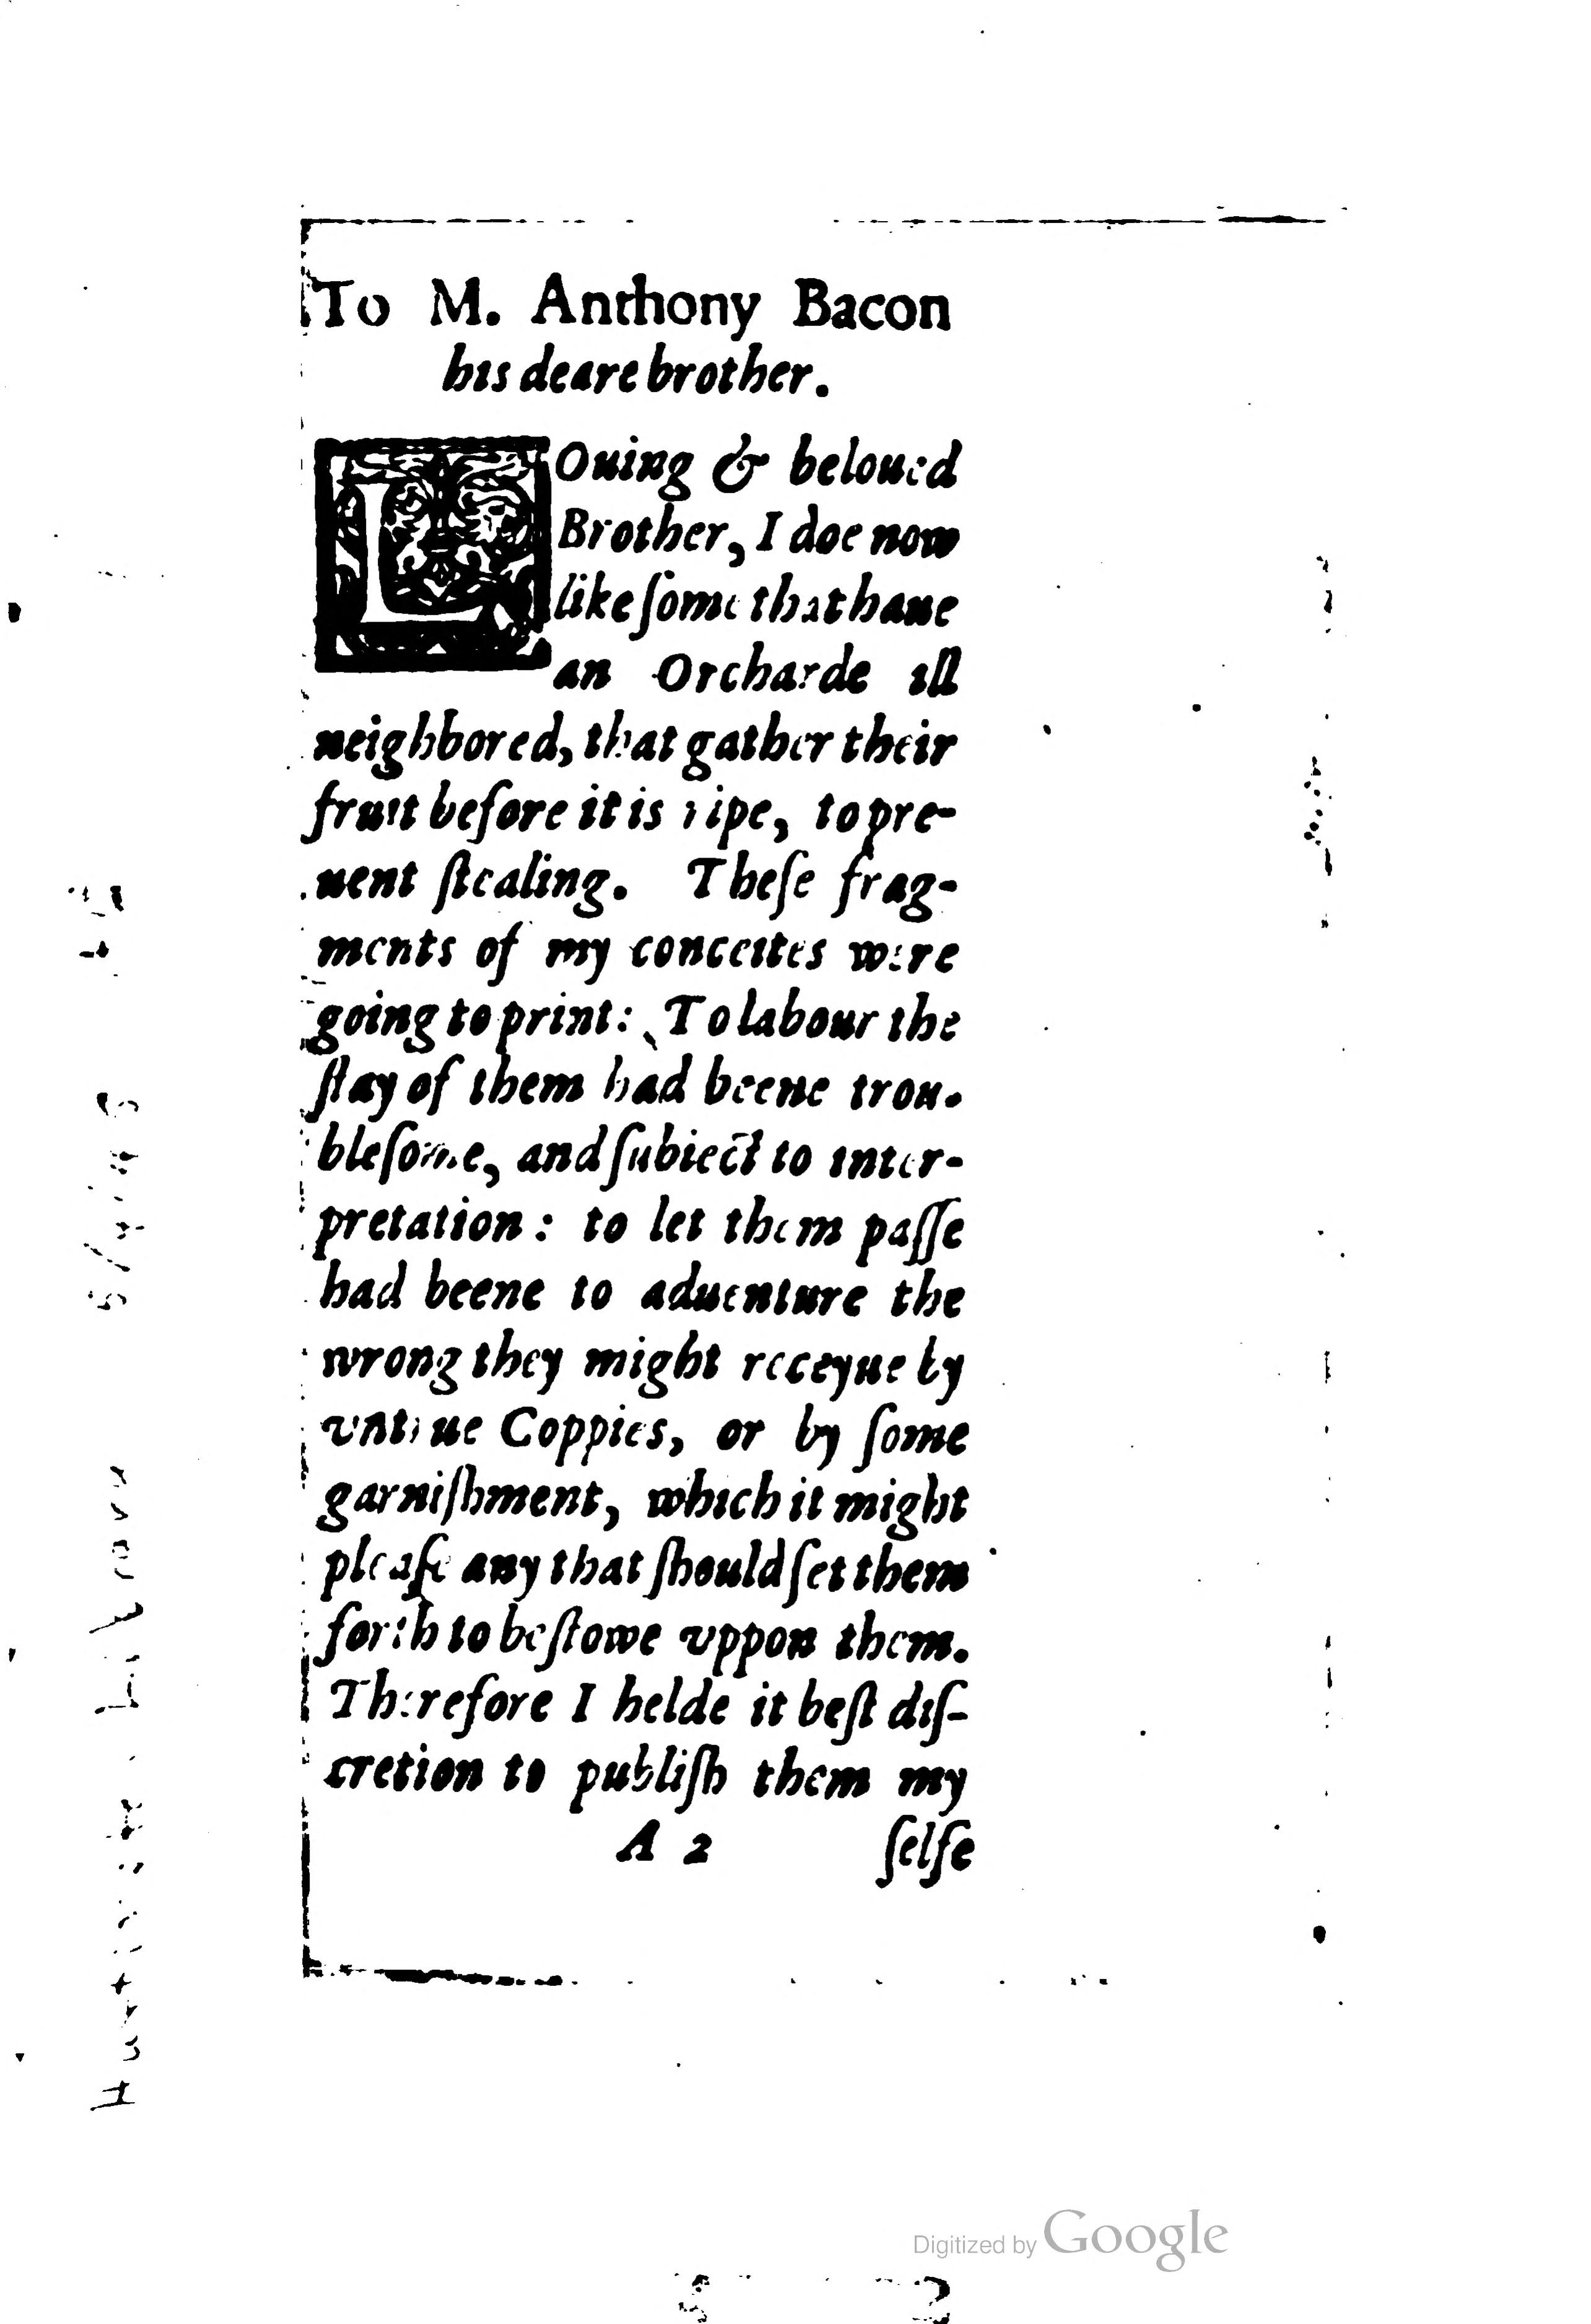 To M. Anthony Bacon
his deare brother.
LOuing & beloued
Brother, I doe now
like ſome that haue
an Orcharde ill
neighbored, that gather their
fruit before it is ripe, to pre-
uent ſtealing. Theſe frag-
ments of my conceites were
going to print: To labour the
ſtay of them had beene trou-
bleſome, and ſubiect to inter-
pretation: to let them paſſe
had beene to aduenture the
wrong they might receyue by
vntrue Coppies, or by ſome
garniſhment, which it might
pleaſe any that ſhould ſet them
forth to beſtowe vppon them.
Therefore I helde it beſt diſ-
cretion to publiſh them my
A 2 ſelfe
Digitized by Google